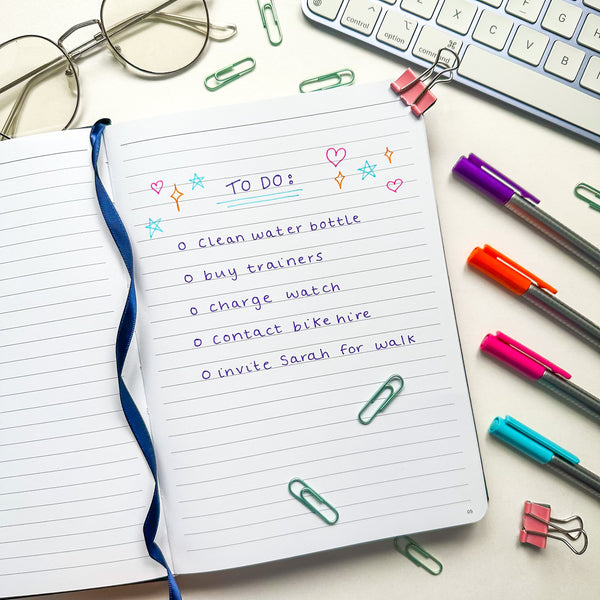 control
option
command
⌘
Z
X
C
V
B
F
G
TO DO:
o clean water bottle
o buy trainers
o charge watch
o contact bike hire
o invite Sarah for walk